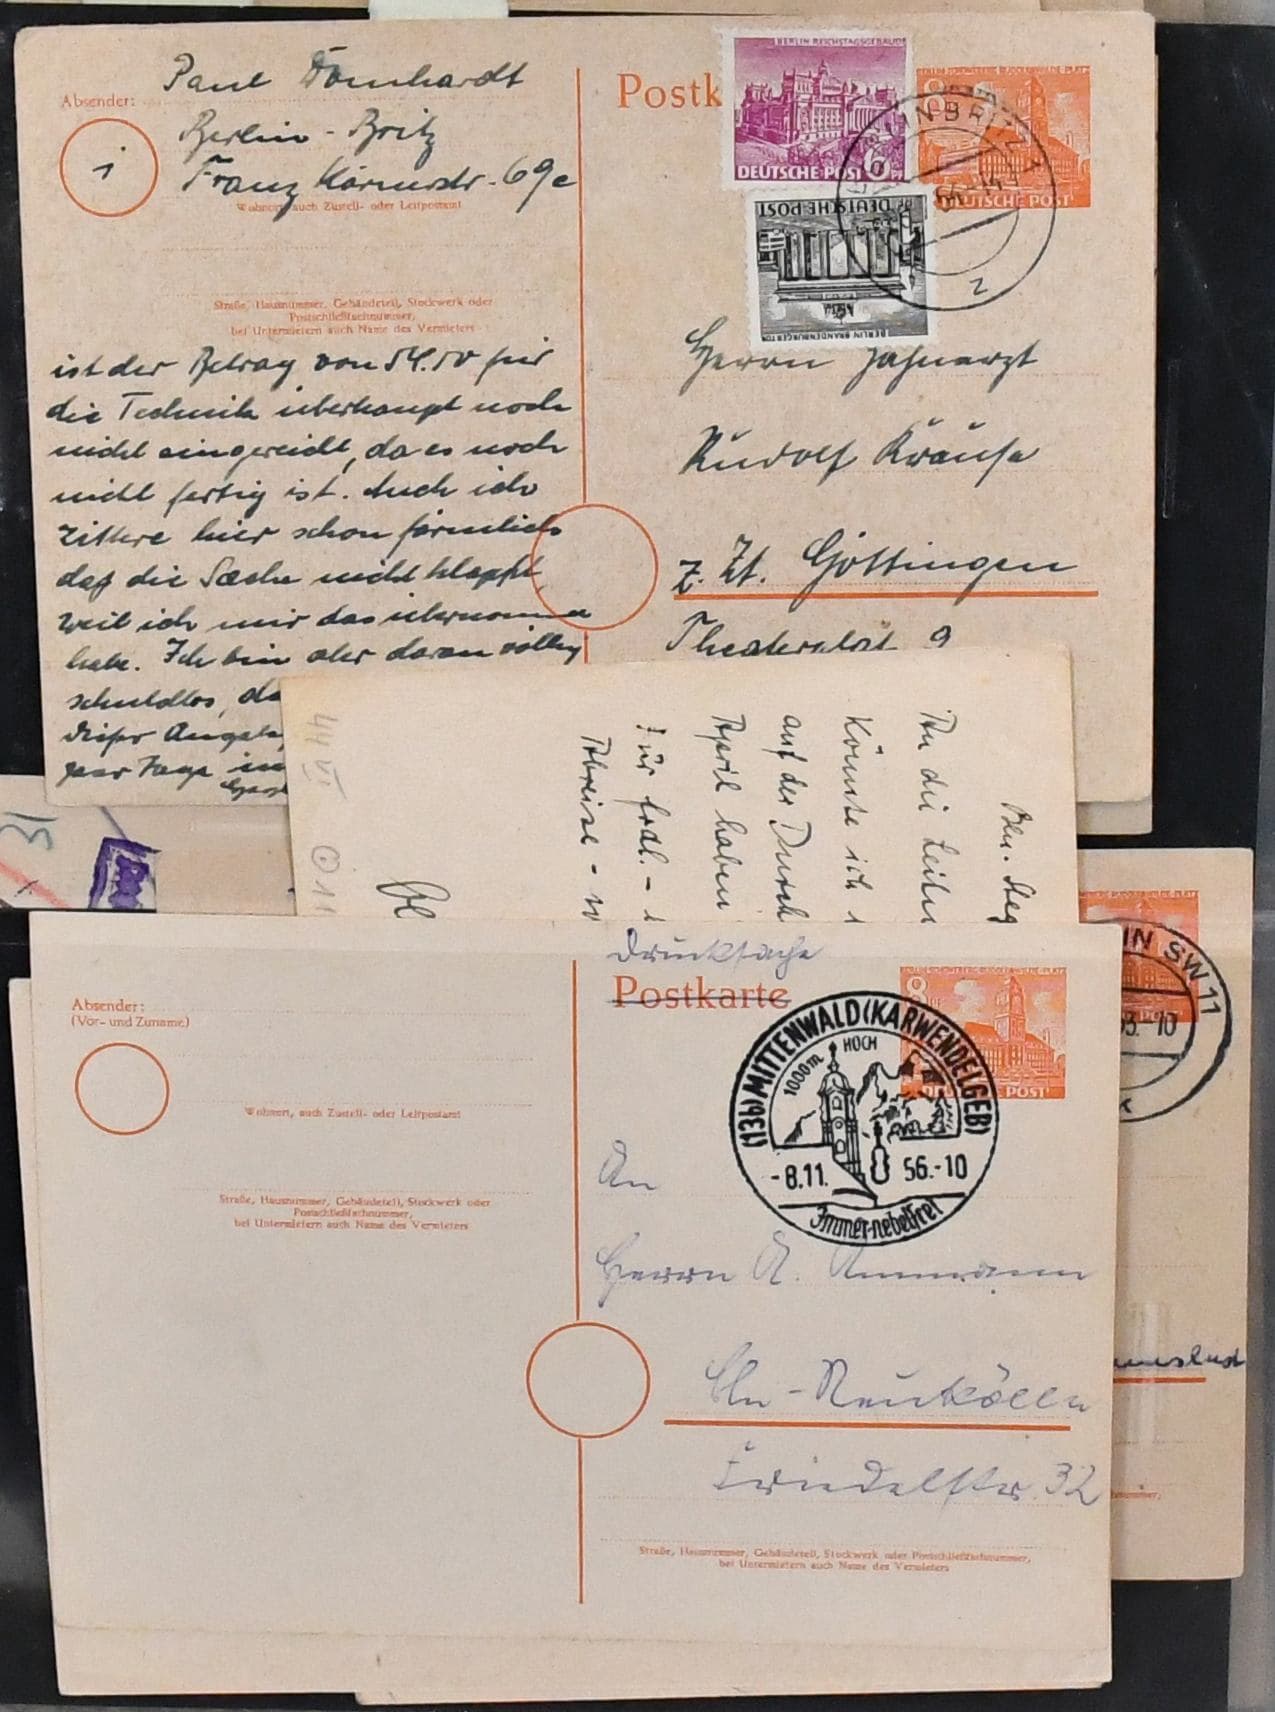 Absender:
Paul Domhardt
Berlin - Britz
Franz Körnerstr. 69c
Wohnort, auch Zustell- oder Leitpostamt
Straße, Hausnummer, Gebäudeteil, Stockwerk oder
Postschließfachnummer,
bei Untermietern auch Name des Vermieters
ist der Betrag von 54.50 für
die Technik überhaupt noch
nicht eingereicht, da es noch
nicht fertig ist. Auch ich
zittere hier schon förmlich
daß die Sache nicht klappt,
weil ich mir das übernomme
habe. Ich bin aber daran völlig
schuldlos, da
dieser Angele
paar Tage in
Postk
BERLIN REICHSTAGSGEBÄUDE
DEUTSCHE POST 6 PF
BERLIN BRANDENBURGER TOR
DEUTSCHE POST
8
DEUTSCHE POST
INBRITZ 1
z
Herrn Zahnarzt
Rudolf Krause
z. Zt. Göttingen
Theaterplat 9
44 VI
Bln. Steg
An die Leitu
Könnte ich
auf der Durch
April haben
Für frdl. -
Abreise -
Bl
31
IN SW 11
53.-10
Drucksache
Postkarte
8 PF
DEUTSCHE POST
(13b) MITTENWALD (KARWENDELGEB)
1000m HOCH
-8.11. 56.-10
Immer-nebelfrei
Absender:
(Vor- und Zuname)
Wohnort, auch Zustell- oder Leitpostamt
Straße, Hausnummer, Gebäudeteil, Stockwerk oder
Postschließfachnummer,
bei Untermietern auch Name des Vermieters
An
Herrn A. Ammann
Bln - Neukölln
Friedelstr. 32
Straße, Hausnummer, Gebäudeteil, Stockwerk oder Postschließfachnummer,
bei Untermietern auch Name des Vermieters